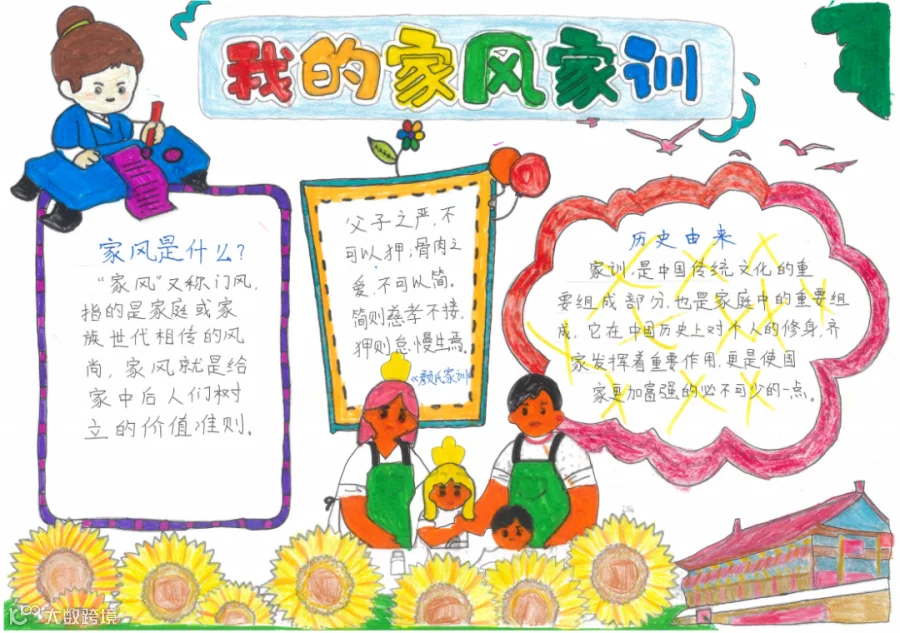 我的家风家训
家风是什么?
“家风”又称门风,
指的是家庭或家
族世代相传的风
尚,家风就是给
家中后人们树
立的价值准则。
父子之严,不
可以狎;骨肉之
爱,不可以简。
简则慈孝不接,
狎则怠慢生焉。
《颜氏家训》
历史由来
家训,是中国传统文化的重
要组成部分,也是家庭中的重要组
成,它在中国历史上对个人的修身,齐
家发挥着重要作用,更是使国
家更加富强的必不可少的一点。
大数跨境